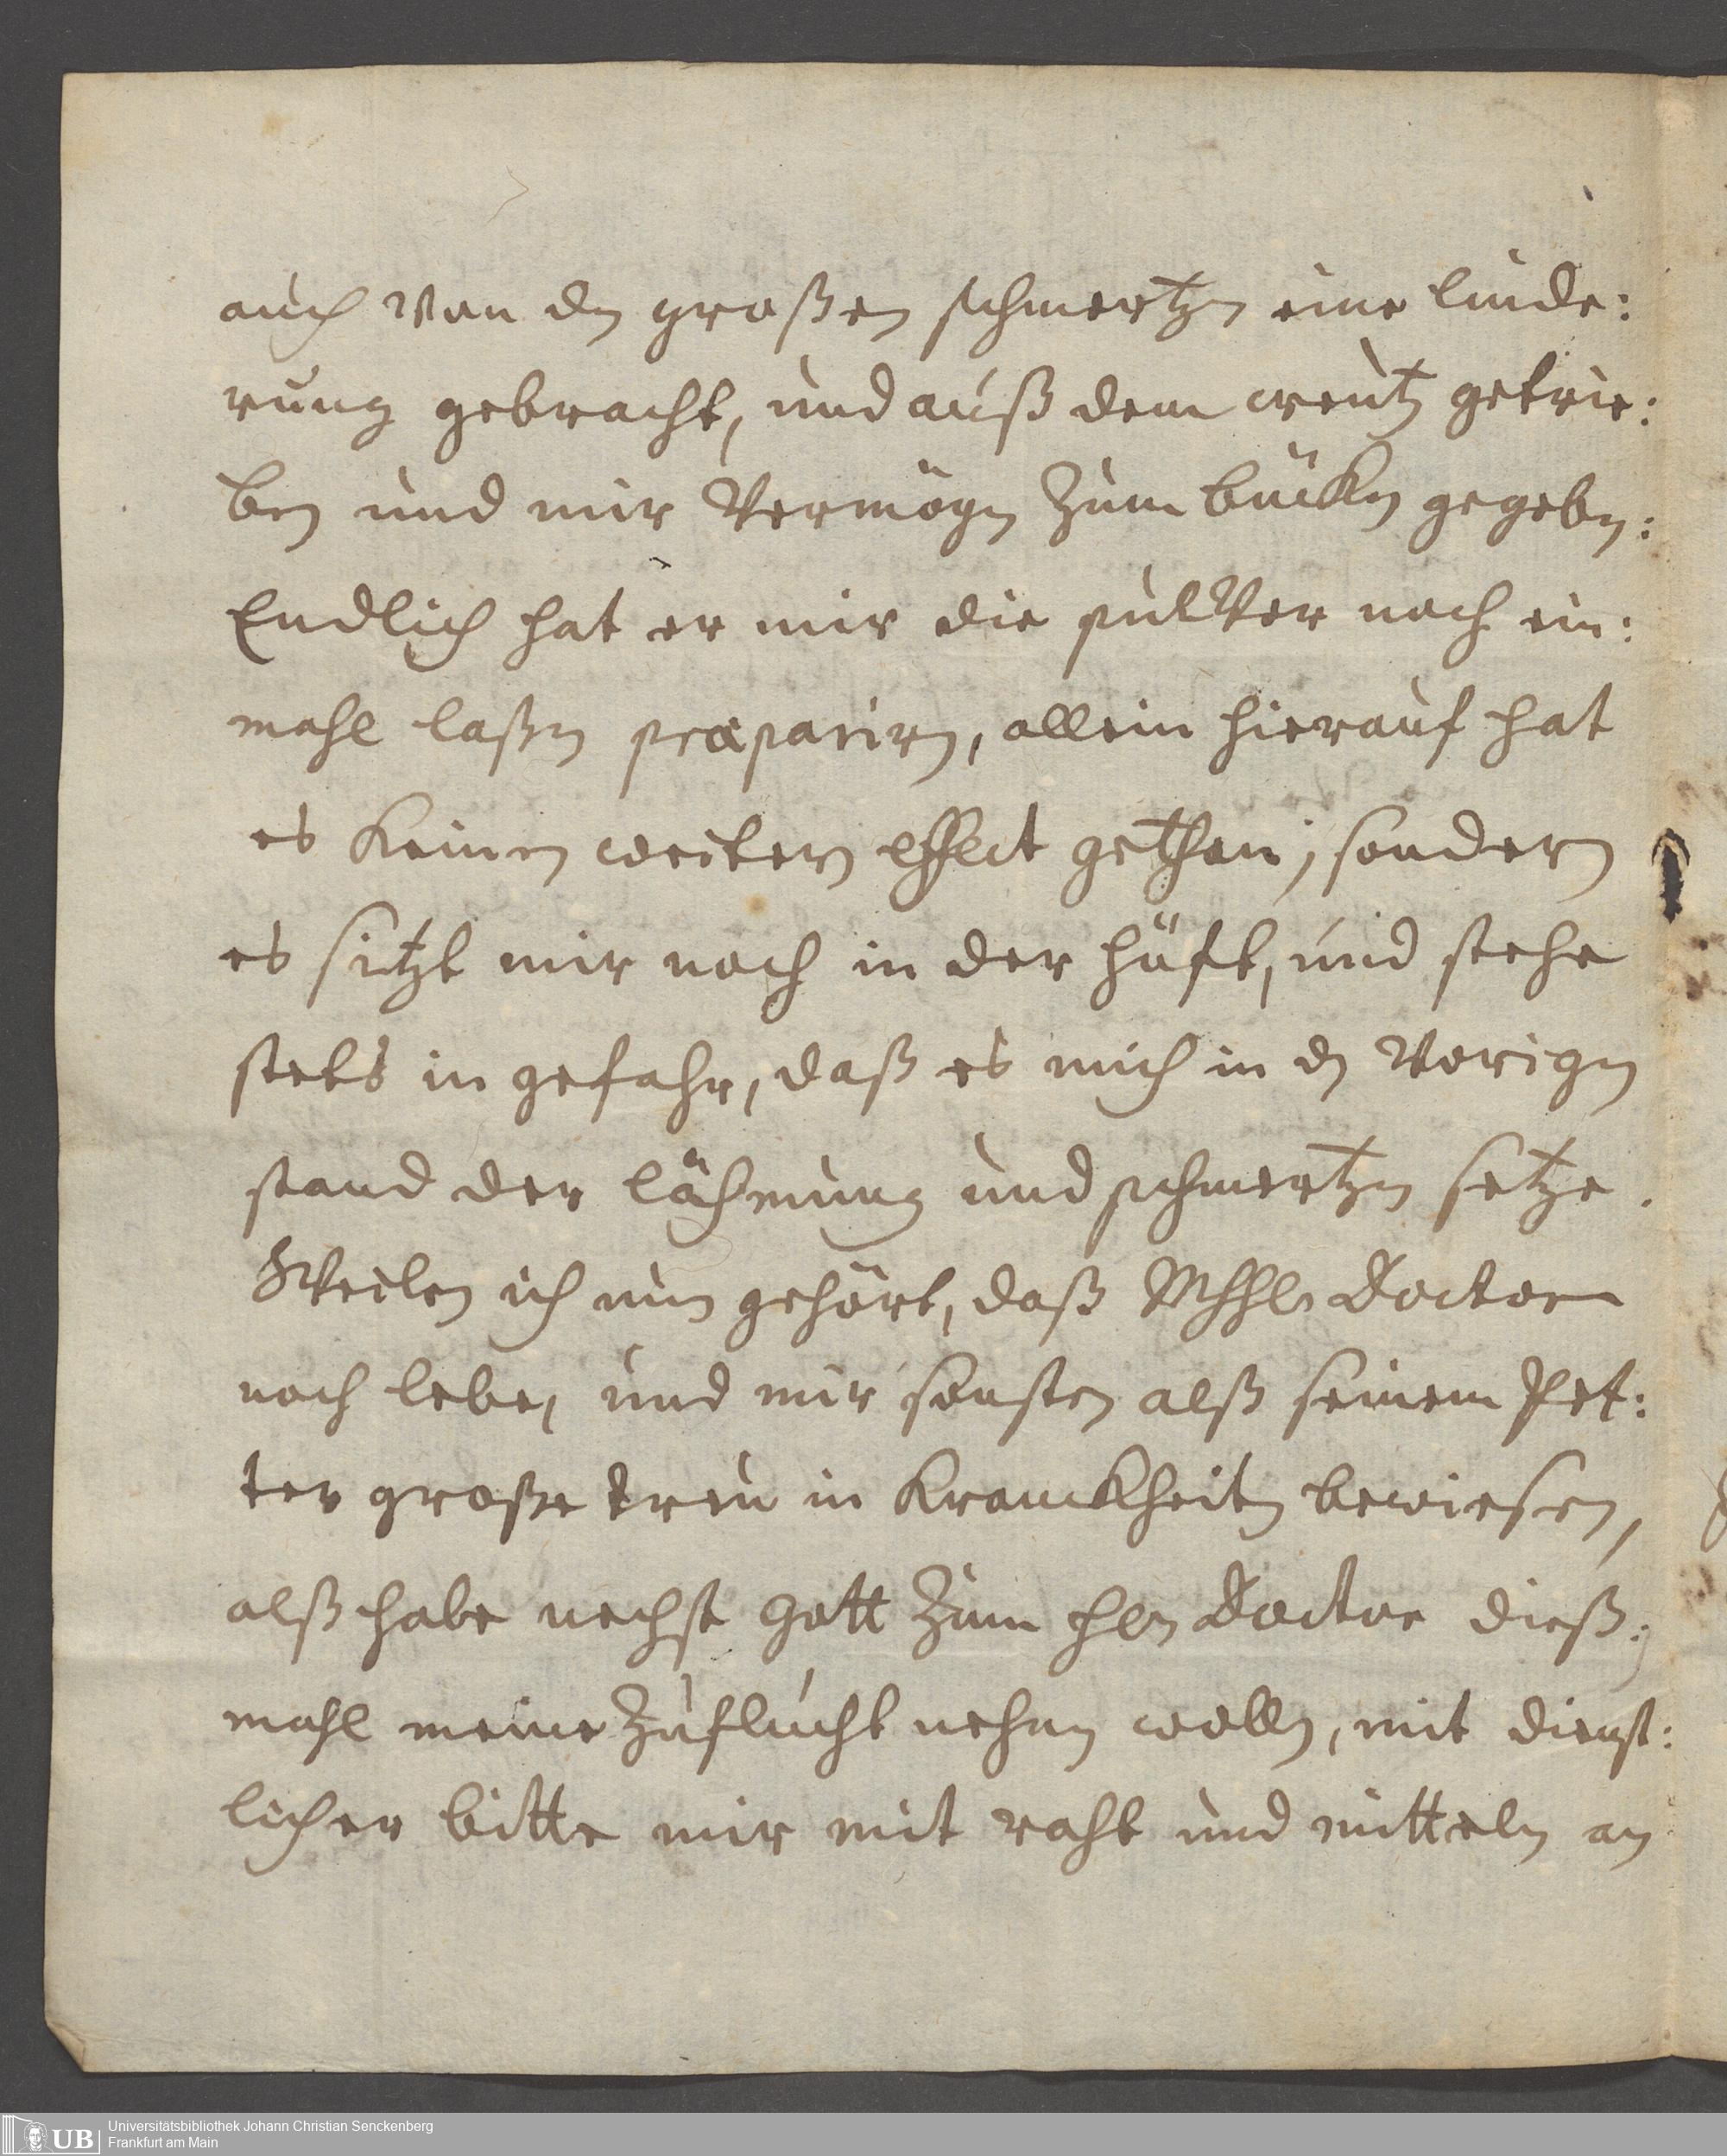 auch von dn großen schmertzen eine linde:
rung gebracht, und auß dem creutz getrie:
ben und mir Vermögn zum bückn gegebn:
Endlich hat er mir die pulVer noch ein:
mahl laßn præparirn, allein hierauf hat
es keinen weitern effect gethan; sondern
es sitzt mir noch in der hüft, und stehe
stets in gefahr, daß es mich in dn Vorign
stand der lähmung und schmertzn setze.
Weilen ich nun gehört, daß Doctor
noch lebe, und mir sonsten alß seinem Pet:
ter große treu in Kranckheitn bewiesen,
alß habe nechst Gott zum hln Doctor dieß:
mahl meine Zuflucht nehmn wolln, mit dienst:
licher bitte mir mit raht und mitteln an
Universitätsbibliothek Johann Christian Senckenberg
Frankfurt am Main
UB